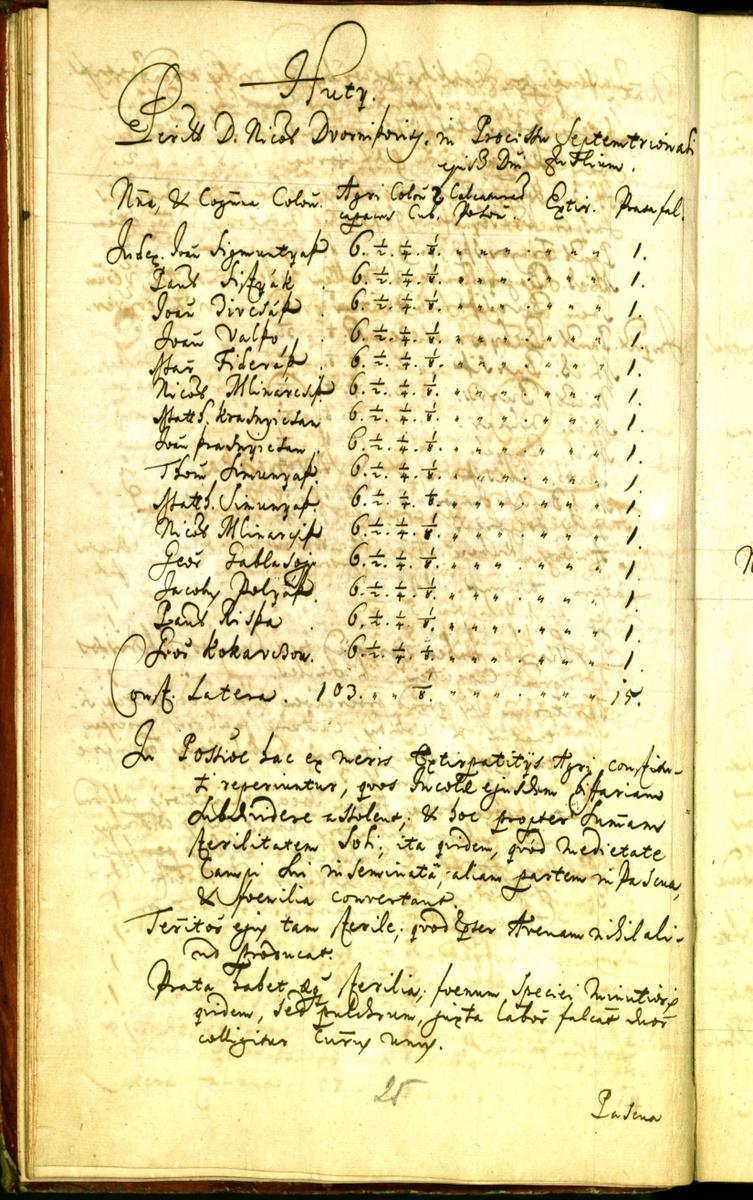 Huty.
D. Nicol Dvornikovics. in Processu Septemtrionali
ejusd. Dni
Nna, & Cognna Colon. Agri Colon Calcatura Extir. Prata fal.
capaces Cub. Poson.
Judex. Joan Sigmuntyak 6. 1/2. 1/4. 1/8. " " " " " " " 1.
Paul 6. 1/2. 1/4. 1/8. " " " " " " " 1.
Joan Divcsák 6. 1/2. 1/4. 1/8. " " " " " " " 1.
Joan Valko 6. 1/2. 1/4. 1/8. " " " " " " " 1.
Mar Fiderák 6. 1/2. 1/4. 1/8. " " " " " " " 1.
Nicol Mlinárcsik 6. 1/2. 1/4. 1/8. " " " " " " " 1.
Matth. Krasnyicsan 6. 1/2. 1/4. 1/8. " " " " " " " 1.
Joan Krasnyicsan 6. 1/2. 1/4. 1/8. " " " " " " " 1.
Thom Simunyak 6. 1/2. 1/4. 1/8. " " " " " " " 1.
Matth. Simunyak 6. 1/2. 1/4. 1/8. " " " " " " " 1.
Nicol Mlinarcsik 6. 1/2. 1/4. 1/8. " " " " " " " 1.
Geor 6. 1/2. 1/4. 1/8. " " " " " " " 1.
Jacobus Polyák 6. 1/2. 1/4. 1/8. " " " " " " " 1.
Paul Rispa 6. 1/2. 1/4. 1/8. " " " " " " " 1.
Geor Kokavcson. 6. 1/2. 1/4. 1/8. " " " " " " " 1.
Latera. 103. " " 1/8. " " " " " " " 15.
In Possioe hac ex meris Extirpatitijs Agri consisten-
ti reperiuntur, quos Incolae ejusdem bifariam
Subdividere assolent; & hoc propter summam
sterilitatem Soli; ita quidem, quod medietate
Campi sui inseminata, aliam partem in Pascua,
& foenilia convertant.
Territor ejus tam sterile; quod praeter Avenam nihil ali-
ud producat.
Prata habet aeque sterilia, foenum speciei minutioris
quidem, sed pulchrum, juxta labor falcat duor
colligitur Currus unus.
25
Pascua